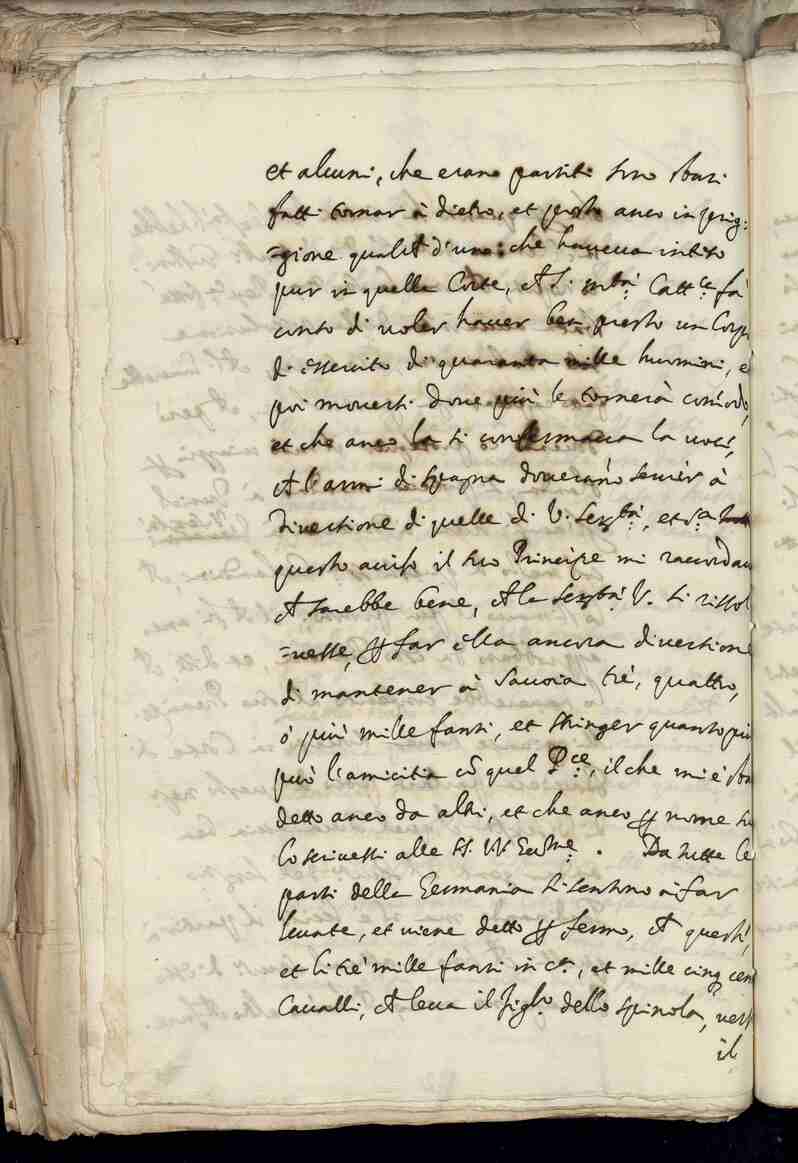 et alcuni, che erano partiti sono stati
fatti tornar à dietro, et posto anco in prig:
=gione qualch' d'uno: che haveva intito
pur in quella Corte, ch' S. M.tà Catt.ca fà
conto di voler haver ben presto un Corpo
di essercito di quaranta mille huomini, e
poi moversi dove più le tornerà com̃odo,
et che anco la si confermava la voce,
ch' l'armi di spagna doveran̄o servir à
diversione di quelle di V. Ser.tà, et
questo aviso il suo Principe mi raccordav
ch' sarebbe bene, ch' la Ser.tà V. si rissol
=vesse, p far ella ancora diversione
di mantener à Savoia trè, quattro,
ò più mille fanti, et stringer quanto più
può l'amicitia cõ quel P.ce, il che mi è sta
detto anco da altri, et che anco p nome su
lo scrivessi alle SS. VV. Ecc.me. Da tutte le
parti della Germania si sentono à far
levate, et viene detto p fermo, ch' questi,
et li trè mille fanti in c.a, et mille cinq cent
Cavalli, ch' leva il figl.o dello spinola, vers
il